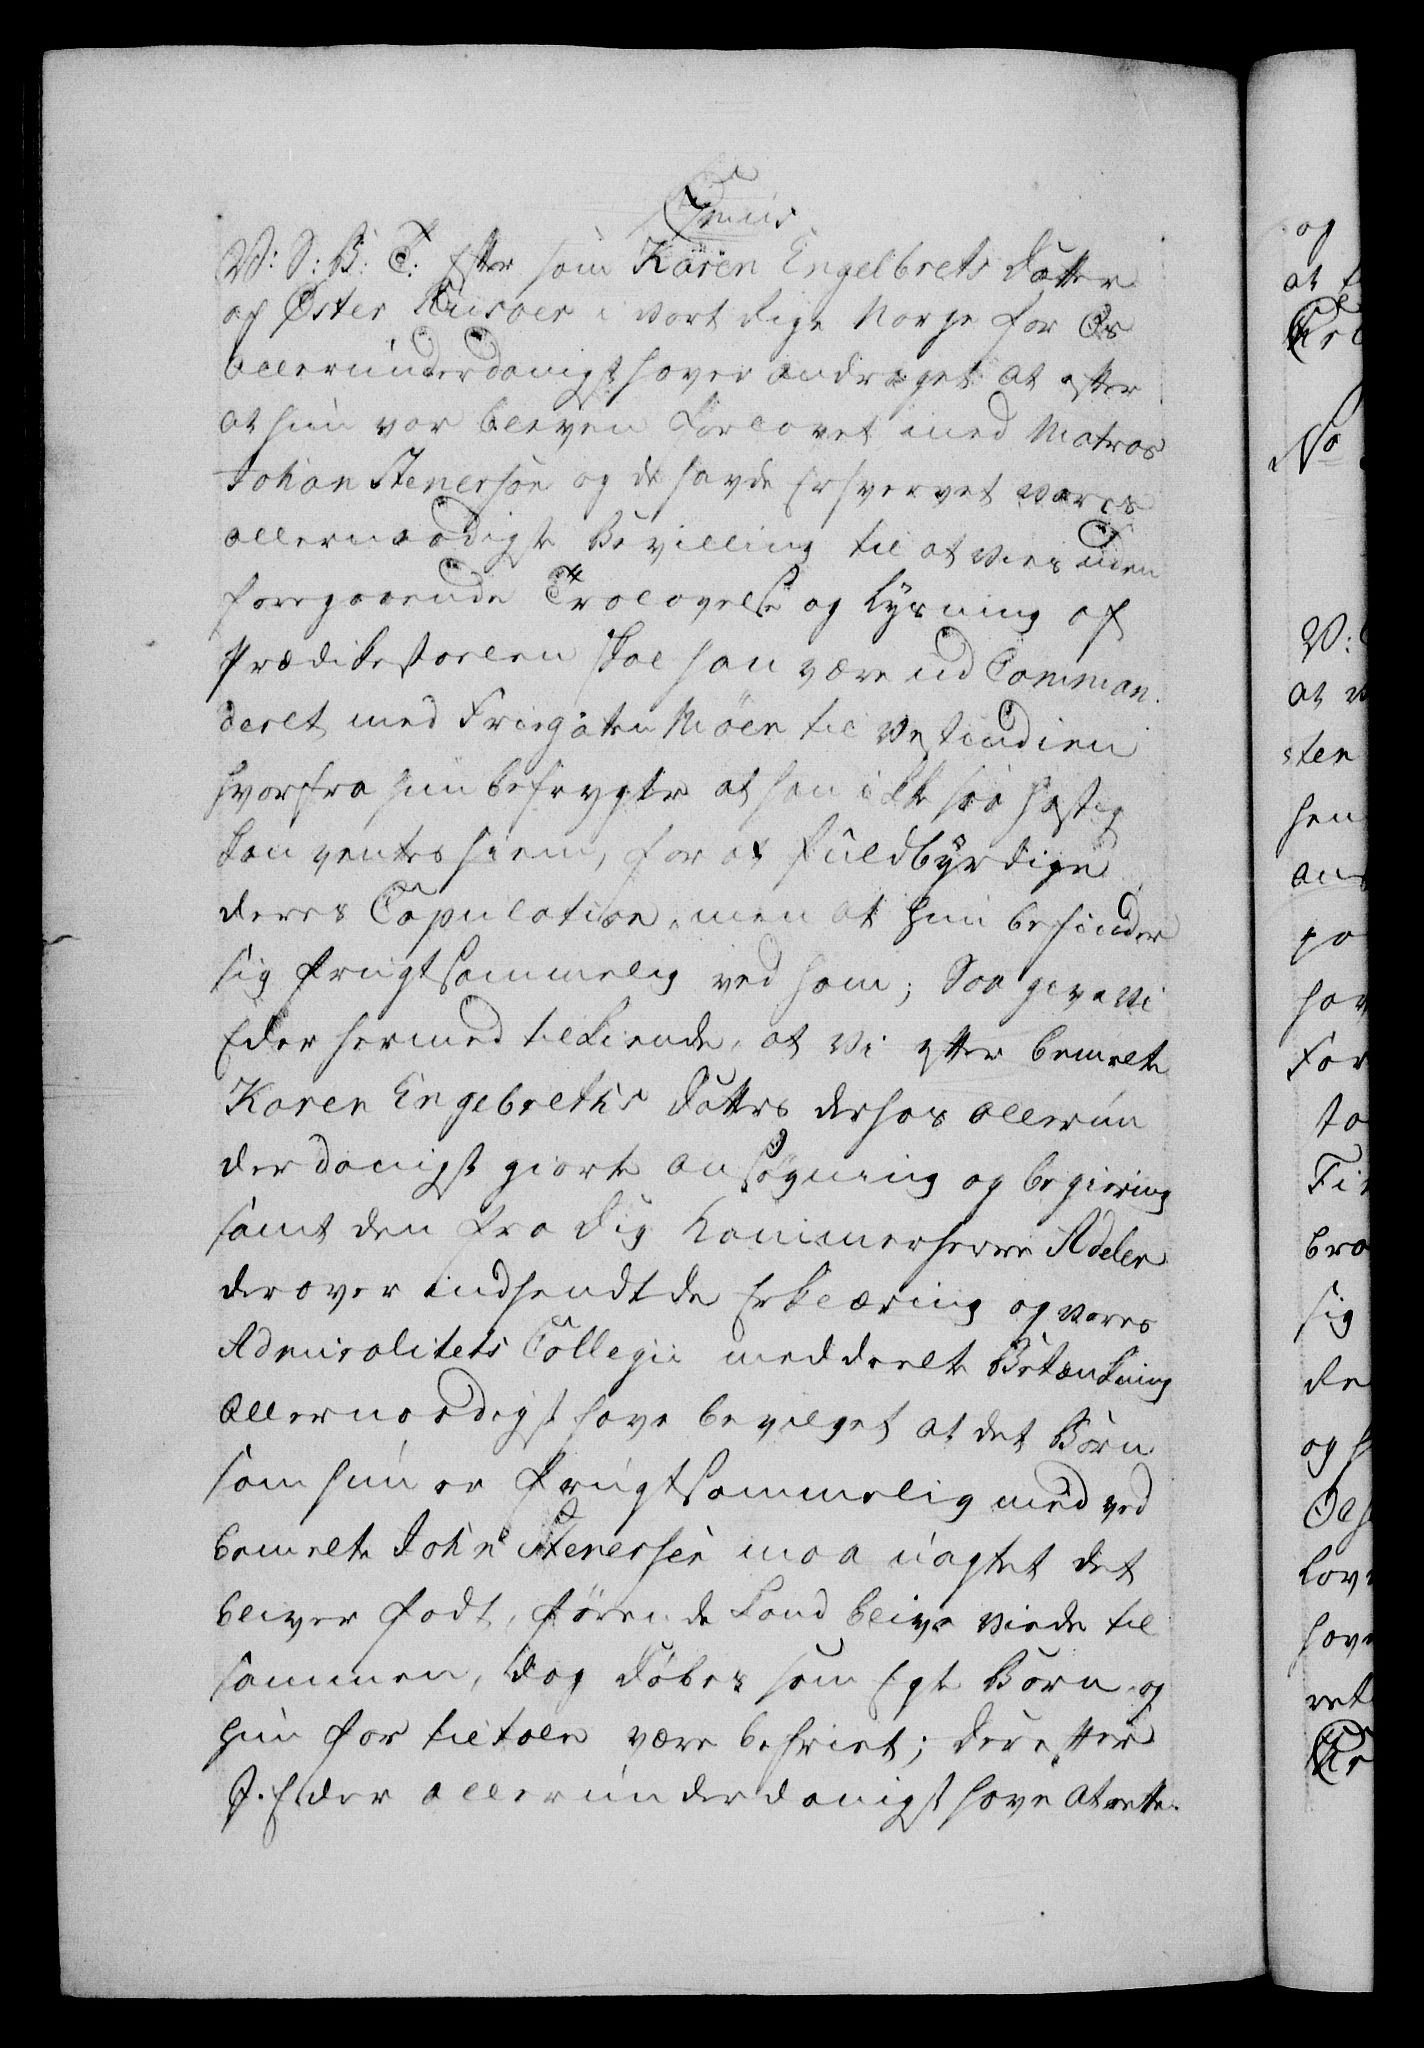 W: S: B: T: Efter som Karen Engelbrets Datter
af Øster Riisøer i vort Rige Norge for Os
allerunderdanigst haver andraget at efter
at hun var bleven Forlovet med Matros
Johan Stenersøn og de havde Ehrvervet vores
allernaadigste Bevilling til at vies uden
foregaaende Trolovelse og Lysning af
Prædikestoelen skal han være ud Comman-
deret med Fregaten Møen til Vestindien
hvorfra hun befrygter at han ikke saa hastig
kan ventes hiem, for at fuldbyrdige
deres Copulation, men at hun befinder
sig frugtsommelig ved ham; Saa give Vi
Eder hermed tilkiende, at Vi efter bemelte
Karen Engebreths Datters derhos allerun
derdanigst giorte ansøgning og begiering
samt den fra dig Kammerherre Adeler
derover indsendte Erklæring og vores
Admiralitets Collegii meddeelte Betænkning
allernaadigst have bevilget at det Barn
som hun er frugtsommelig med ved
bemelte Johan Stenersen maa uagtet det
bliver født, førend de kand blive viede til
sammen, dog døbes som Egte Barn og
hun for tiltale være befriet; derefter
I. Eder allerunderdanigst have at rette.
og
No
W:
at
sten
hen
for
sig
og
lov